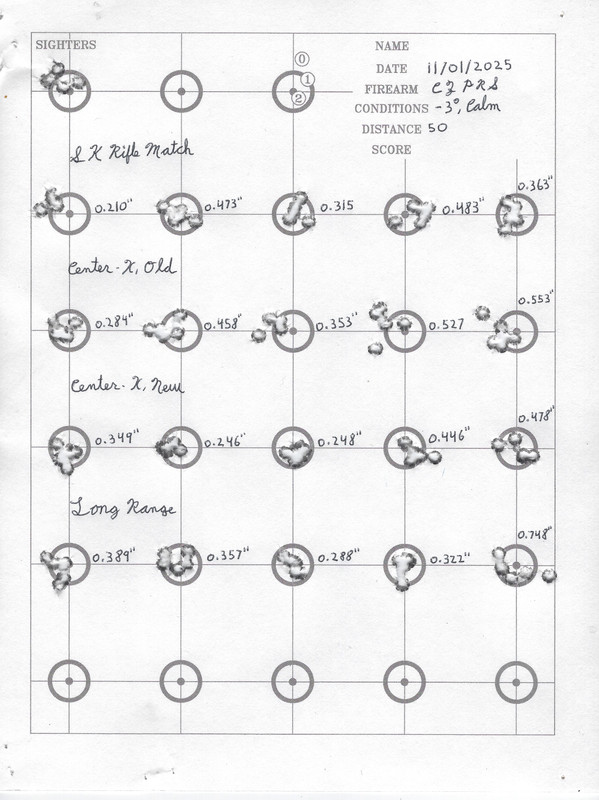 SIGHTERS
0
1
2
NAME
DATE 11/01/2025
FIREARM CZ PRS
CONDITIONS -3°, Calm
DISTANCE 50
SCORE
SK Rifle Match
0.210" 0.473" 0.315 0.483" 0.363"
Center-X, Old
0.284" 0.458" 0.353" 0.527 0.553"
Center-X, New
0.349" 0.246" 0.248" 0.446" 0.478"
Long Range
0.389" 0.357" 0.288" 0.322" 0.748"